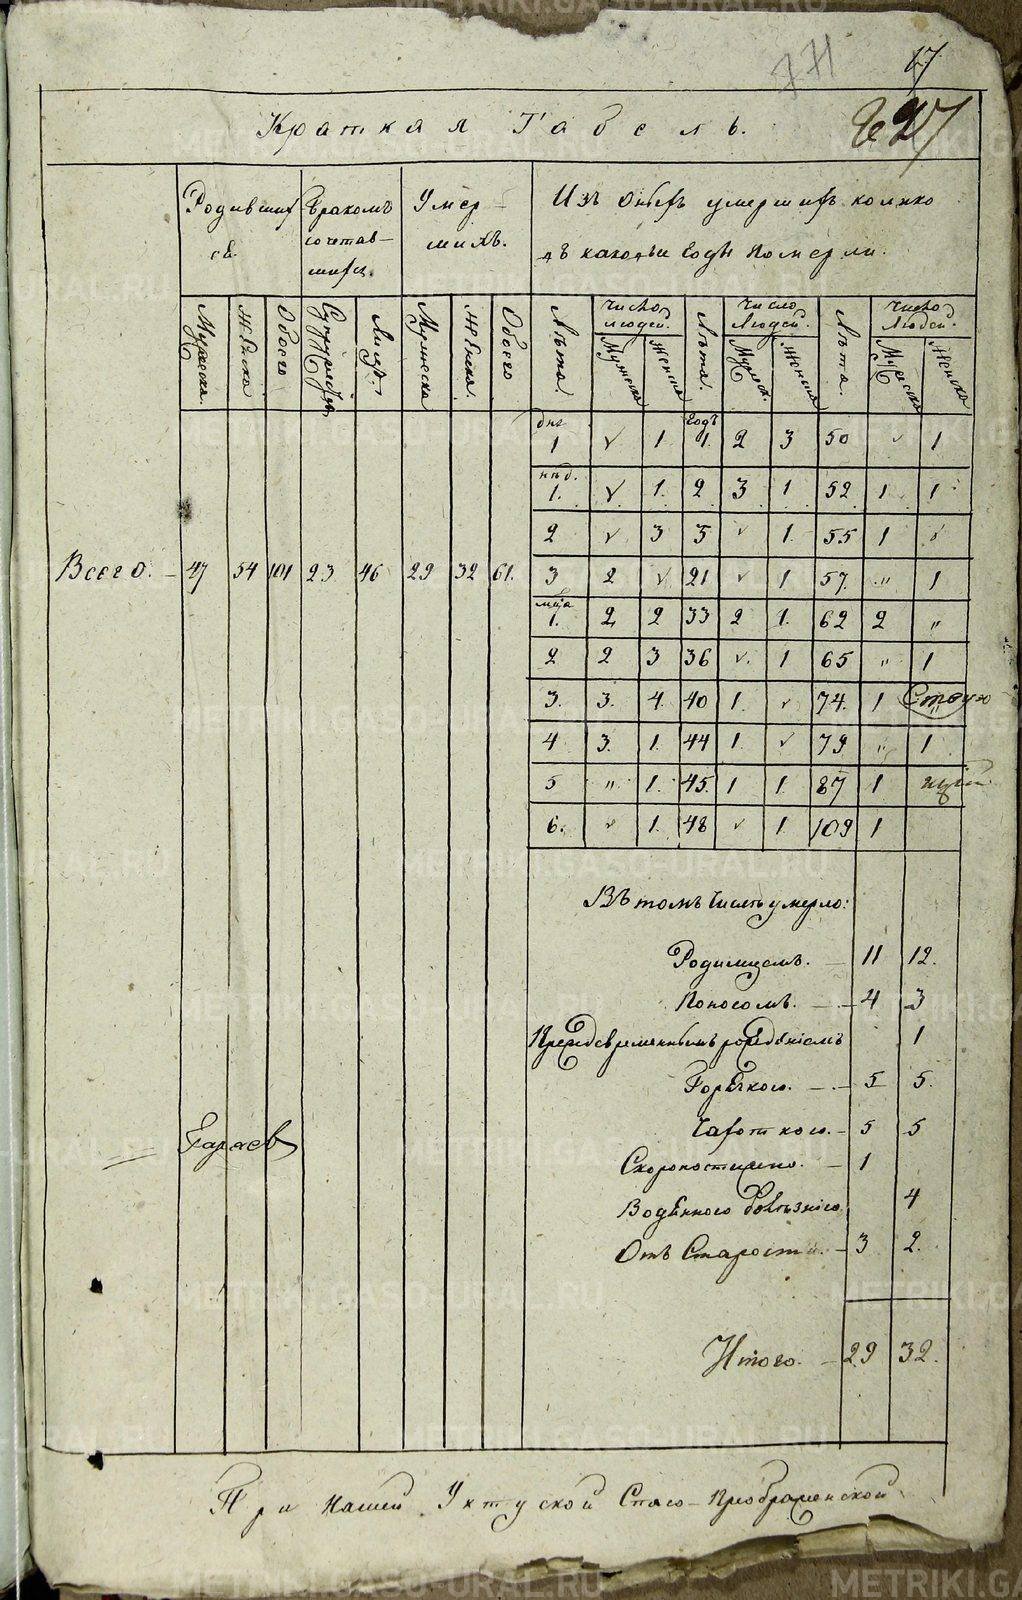 17
Краткая Табель.
Родивших
ся.
Бракомъ
сочетав-
шихся.
Умер-
шихъ.
Изъ оныхъ умершихъ колико
въ каковые годы померли.
Мужеска Женска Обоего Супружествъ Лицъ. Мужеска Женска. Обоего Лѣта. Число Людей. Мужеска Женска Лѣта. Число Людей. Мужеск. Женска Лѣта. Число Людей. Мужеска Женска
дня 1 1. годъ 1. 2 3 50 1
нед. 1. 1. 2 3 1 52 1 1
2 3 5 1. 55 1
3 2 21 1 57. " 1
мца 1. 2 2 33 2 1. 62 2 "
2 2 3 36 1 65 " 1
3. 3. 4. 40 1. 74. 1 "
4 3. 1. 44 1. 79 " 1
5 " 1. 45. 1 1. 87 1
6. 1. 48 1. 109 1
Всего. - 47 54 101 23 46 29 32 61.
Въ томъ числѣ умерло:
Родимцемъ. - 11 12.
Поносомъ. - 4 3
Преждевременнымъ рожденіемъ 1
Горячкою. - 5 5.
Чахоткою. - 5 5
Скоропостижно. - 1
Водяною болѣзнію 4
Отъ Старости. - 3 2.
Итого. - 29 32.
При нашей Уктуской Спасо-Преображенской
METRIKI.GASO-URAL.RU